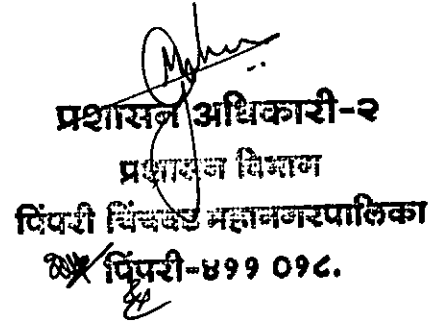 प्रशासन अधिकारी-२
प्रशासन विभाग
पिंपरी चिंचवड महानगरपालिका
पिंपरी-४११ ०१८.